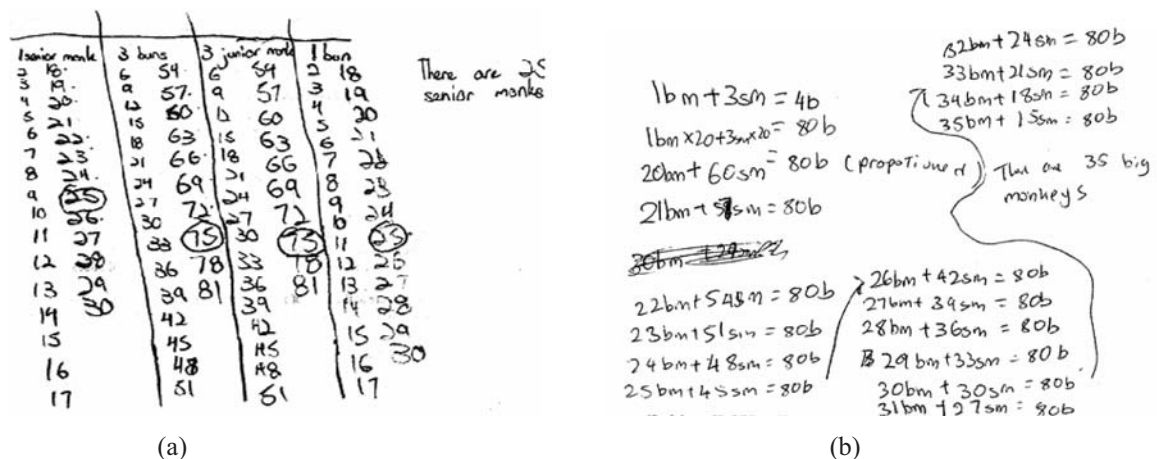 1 senior monk 3 buns 3 junior monk 1 bun
2 18 6 54 6 54 2 18
3 19 9 57 9 57 3 19
4 20 12 60 12 60 4 20
5 21 15 63 15 63 5 21
6 22 18 66 18 66 6 22
7 23 21 69 21 69 7 23
8 24 24 72 24 72 8 24
9 25 27 75 27 75 9 25
10 26 30 78 30 78 10 26
11 27 33 81 33 81 11 27
12 28 36 36 12 28
13 29 39 39 13 29
14 30 42 42 14 30
15 45 45 15
16 48 48 16
17 51 51 17
There are 25
senior monks
(a)
1bm+3sm = 4b
1bm×20+3sm×20 = 80b
20bm+60sm = 80b (propotioned)
21bm+57sm=80b
22bm+54sm = 80b
23bm+51sm = 80b
24bm+48sm = 80b
25bm+45sm = 80b
26bm+42sm = 80b
27bm+39sm = 80b
28bm+36sm = 80b
29bm+33sm = 80b
30bm+30sm = 80b
31bm+27sm = 80b
32bm+24sm = 80b
33bm+21sm = 80b
34bm+18sm = 80b
35bm+15sm = 80b
35 big
monkeys
(b)